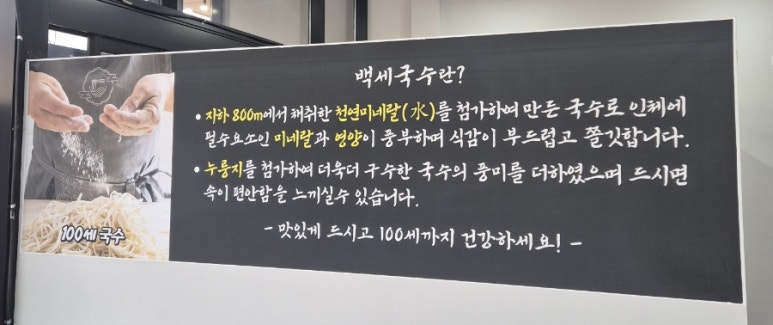 백세국수란?
• 지하 800m에서 채취한 천연미네랄(水)를 첨가하여 만든 국수로 인체에
필수요소인 미네랄과 영양이 풍부하며 식감이 부드럽고 쫄깃합니다.
• 누룽지를 첨가하여 더욱더 구수한 국수의 풍미를 더하였으며 드시면
속이 편안함을 느끼실수 있습니다.
- 맛있게 드시고 100세까지 건강하세요! -
100세 국수